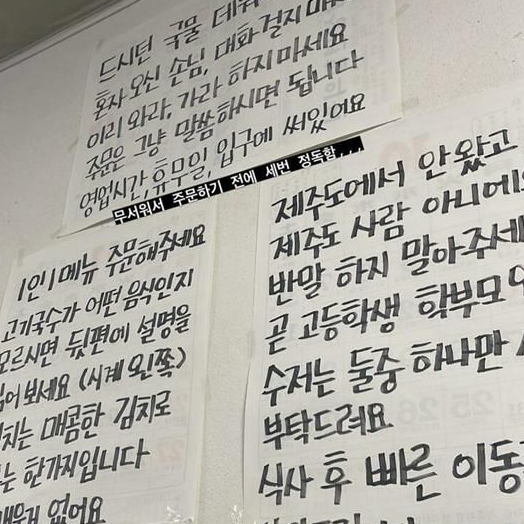 드시던 국물
혼자 오신 손님, 대화 걸지
이리 와라, 가라 하지마세요
주문은 그냥 말씀하시면 됩니다
영업시간, 휴무일, 입구에 써있어요
무서워서 주문하기 전에 세번 정독함...
1인 1메뉴 주문해주세요
고기국수가 어떤 음식인지
모르시면 뒷편에 설명을
보세요 (시계 왼쪽)
매콤한 김치로
한가지입니다
없어요
제주도에서 안 왔고
제주도 사람 아니에
반말 하지 말아주세
곧 고등학생 학부모
수저는 둘중 하나만
부탁드려요
식사 후 빠른 이동